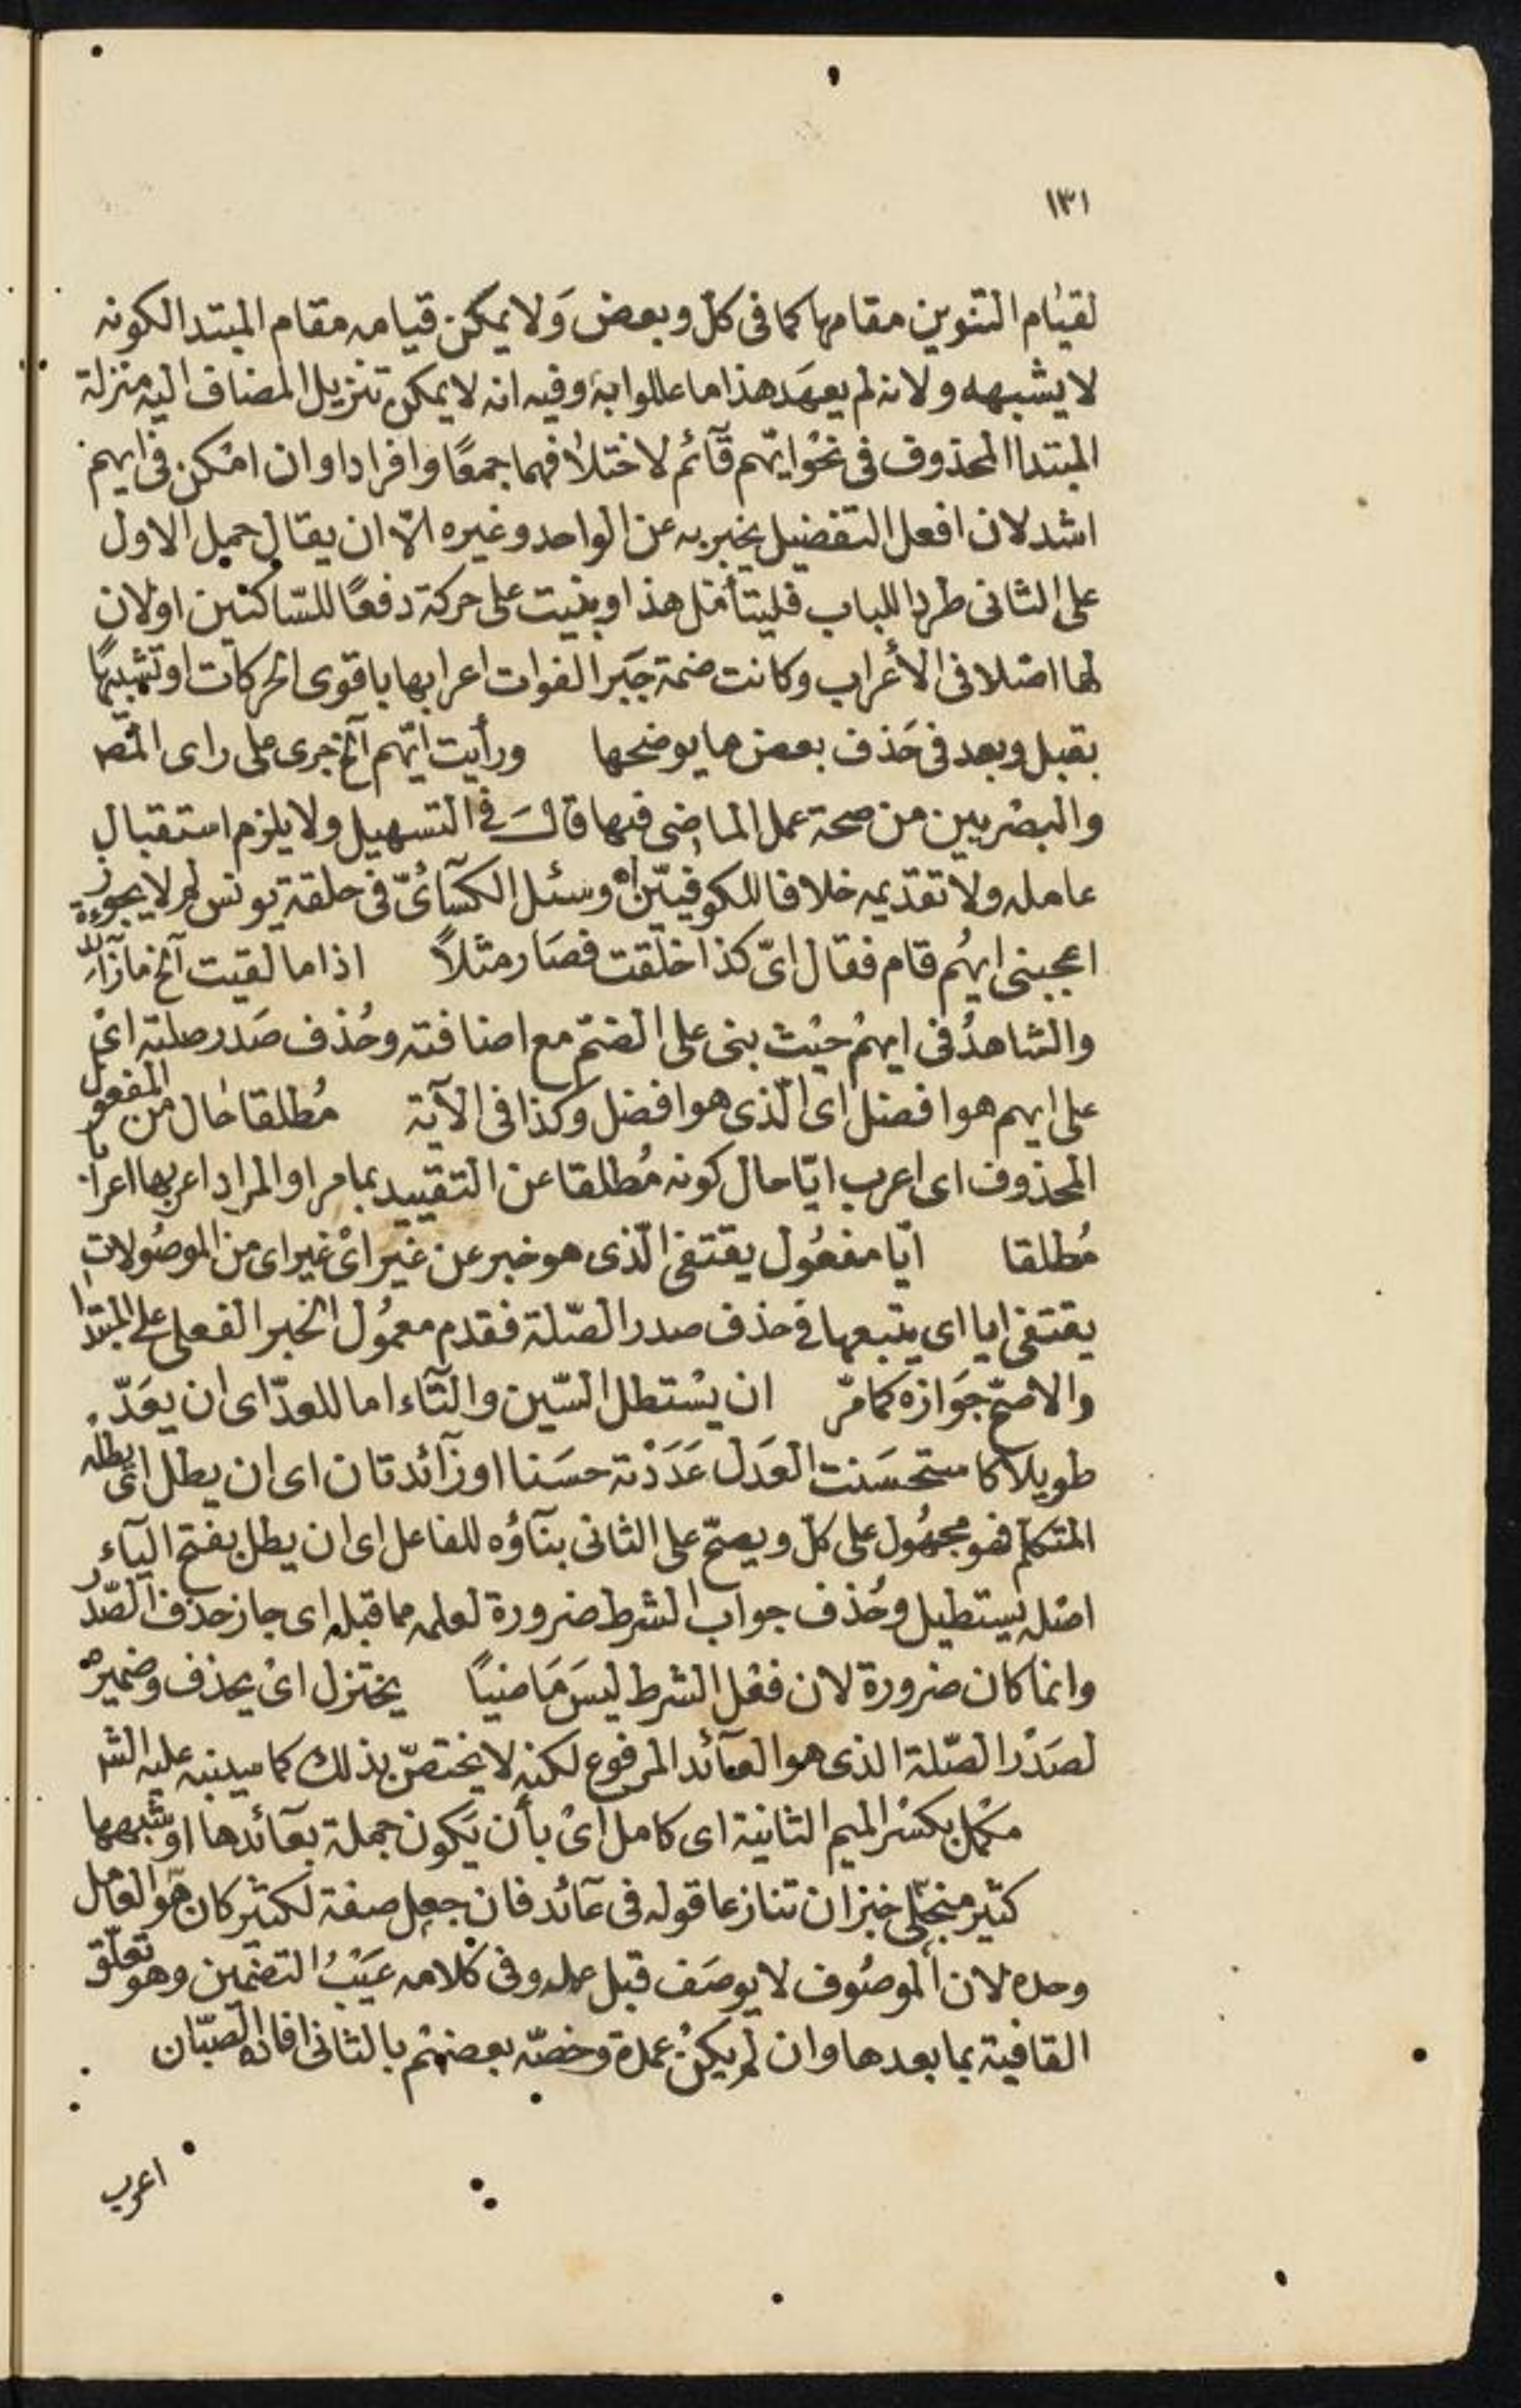 ١٣١
لقيام التنوين مقامها كما فى كل وبعض وَلا يمكن قيامه مقام المبتدا لكونه
لا يشبهه ولانه لم يعهَد هذا ما عللوا به وفيه انه لا يمكن تنزيل المضاف اليه منزلة
المبتدا المحذوف فى نحْو ايّهم قآئم لاختلافهما جمعًا وافرادا وان امْكن فى ايهم
اشد لان افعل التفضيل يخبر به عن الواحد وغيره الّا ان يقال حمل الاول
على الثانى طردا للباب فليتأمّل هذا وبنيت على حركة دفعًا للسّاكنين او لان
لها اصْلا فى الأعْراب وكانت ضمة جَبرا لفوات اعرابها باقوى الحركات او تشبيهًا
بقبل وبعد فى حَذف بعض ما يوضحها ورأيت ايّهم آلخ جرى على راى المّصـ
والبصْريين من صحة عمل الماضى فيها قالَ فى التسهيل ولا يلزم استقبال
عامله ولا تقدّيمه خلافا للكوفييّن اه وسئل الكسَآئىّ فى حلقة يونس لم لا يجوز
اعجبنى ايهُم قام فقال اىّ كذا خلقت فصَار مثلاً اذا ما لقيت آلخ ما زآئدة
والشاهدُ فى ايهمْ حيْث بنى على الضمّ مع اضافته وحُذف صَدر صلته اىْ
على ايهم هو افضل اى الّذى هو افضل وكذا فى الآية مُطلقا حال من المفعول
المحذوف اى اعرب ايّا حال كونه مُطلقا عن التقييد بما مر او المراد اعربها اعرابا
مُطلقا ايّا مفعُول يقتفى الّذى هو خبر عن غيْر اىْ غير اى من الموصُولات
يقتفى ايا اى يتبعها فى حذف صدر الصّلة فقدم معمُول الخبر الفعلى على المبتدا
والاصّح جَوازه كما مّر ان يسْتطل السّين والتّآء اما للعدّ اى ان يعَدّ
طويلا كاستحسَنت العَدل عَدَدْته حسَنا او زآئدتان اى ان يطل اى يطله
المتكلّم فهو مجهُول على كلّ ويصحّ على الثانى بنآؤه للفاعل اى ان يطل بفتح اليآء
اصْله يستطيل وحُذف جواب الشرط ضرورة لعلمه مما قبله اى جاز حذف الصّدر
وانما كان ضرورة لان فعْل الشرط ليسَ مَاضيًا يختزل اىْ يحذف وضميره
لصَدْر الصّلة الذى هو العآئد المرفوع لكنه لا يختصّ بذلك كما سينبه عليه الشـ
مكْمل بكسْر الميم الثانية اى كامل اىْ بأن يَكون جملة بعآئدها او شبهها
كثير منجّلى خبر ان تنازعا قوله فى عآئد فان جعل صفة لكثير كان هُو العامل
وحده لان الموصُوف لا يوصَف قبل عمله وفى كلامه عيَبُْ التضّمين وهو تعلّق
القافية بما بعدها وان لم يكنْ عمدة وخصّه بعضهْم بالثانى افاده الصبّان
اعرب